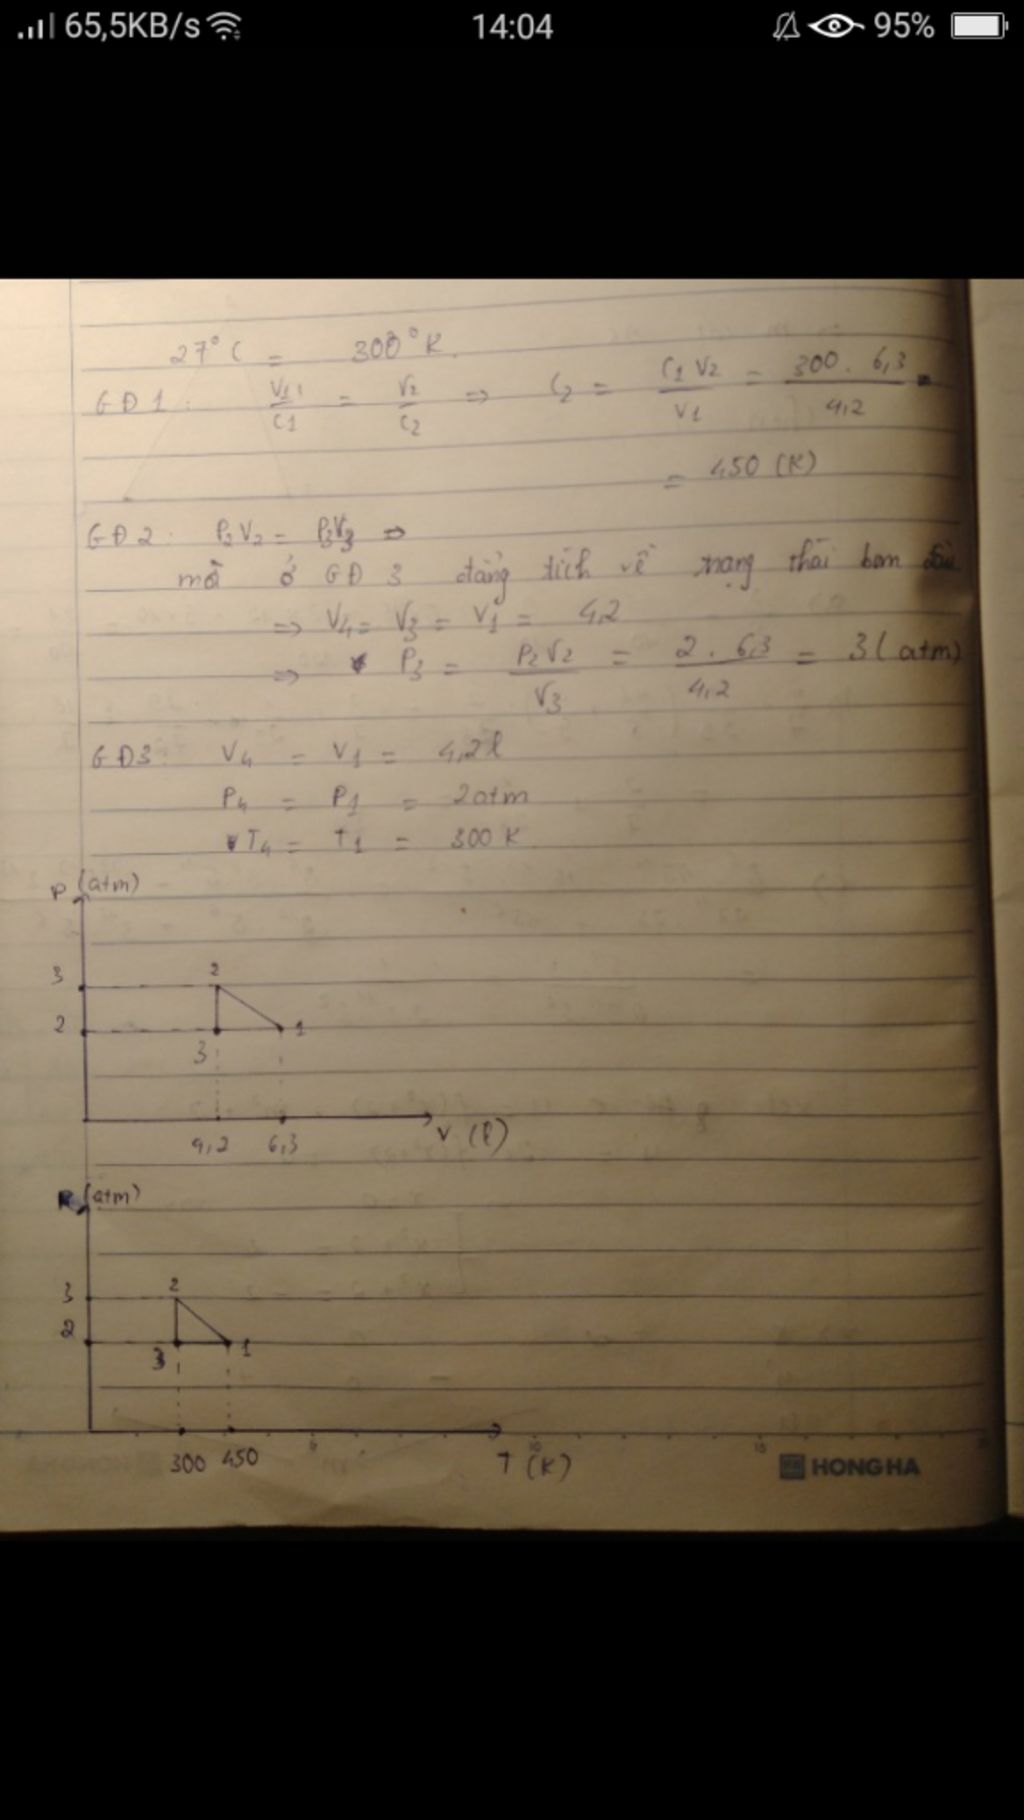 65,5KB/s 14:04 95%
27°C = 300°K
GĐ1: V1/C1 = V2/C2 ⇒ C2 = C1 V2/V1 = 300 . 6,3/4,2 =
= 450 (K)
GĐ2: P2 V2 = P3V3 ⇒
mà ở GĐ 3 đẳng tích về trạng thái ban đầu
⇒ V4 = V3 = V1 = 4,2
⇒ P3 = P2 V2/V3 = 2 . 6,3/4,2 = 3 (atm)
GĐ3: V4 = V1 = 4,2l
P4 = P1 = 2atm
T4 = T1 = 300 K
P (atm)
3 2
2 1
3
4,2 6,3 V (l)
P (atm)
3 2
2 3 1
300 450 T (K)
5 10 15
HONG HA